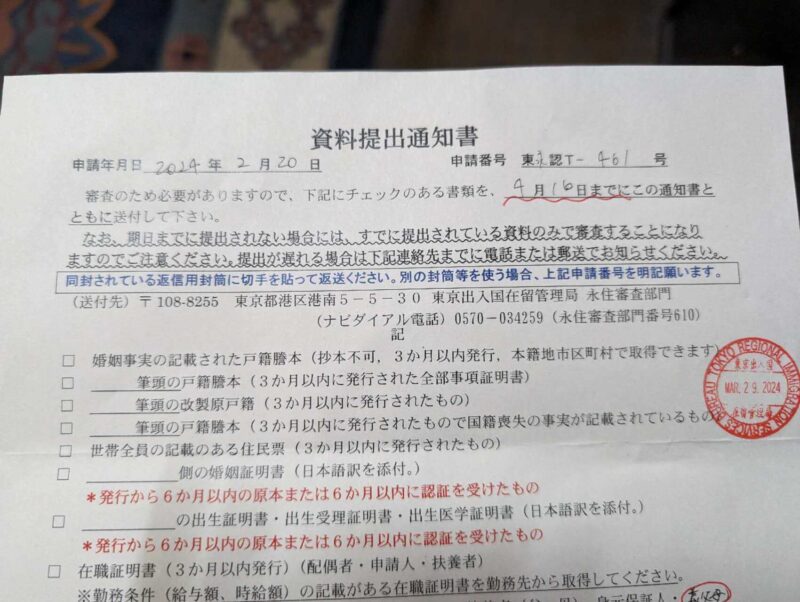 資料提出通知書
申請年月日 2024 年 2 月 20 日 申請番号 東永認T- 461 号
審査のため必要がありますので、下記にチェックのある書類を、 4月16日までにこの通知書と
ともに送付して下さい。
なお、期日までに提出されない場合には、すでに提出されている資料のみで審査することになり
ますのでご注意ください。提出が遅れる場合は下記連絡先までに電話または郵送でお知らせください。
同封されている返信用封筒に切手を貼って返送ください。別の封筒等を使う場合、上記申請番号を明記願います。
(送付先) 〒108-8255 東京都港区港南5-5-30 東京出入国在留管理局 永住審査部門
(ナビダイアル電話) 0570-034259 (永住審査部門番号610)
記
□ 婚姻事実の記載された戸籍謄本 (抄本不可, 3か月以内発行, 本籍地市区町村で取得できます)
□ ______筆頭の戸籍謄本 (3か月以内に発行された全部事項証明書)
□ ______筆頭の改製原戸籍 (3か月以内に発行されたもの)
□ ______筆頭の戸籍謄本 (3か月以内に発行されたもので国籍喪失の事実が記載されているもの
□ 世帯全員の記載のある住民票 (3か月以内に発行されたもの)
□ ______側の婚姻証明書 (日本語訳を添付。)
*発行から6か月以内の原本または6か月以内に認証を受けたもの
□ ______の出生証明書・出生受理証明書・出生医学証明書 (日本語訳を添付。)
*発行から6か月以内の原本または6か月以内に認証を受けたもの
□ 在職証明書 (3か月以内発行) (配偶者・申請人・扶養者)
※勤務条件 (給与額、時給額) の記載がある在職証明書を勤務先から取得してください。
身元保証人・
TOKYO REGIONAL IMMIGRATION SERVICES BUREAU
東京出入国
MAR. 29. 2024
在留管理局